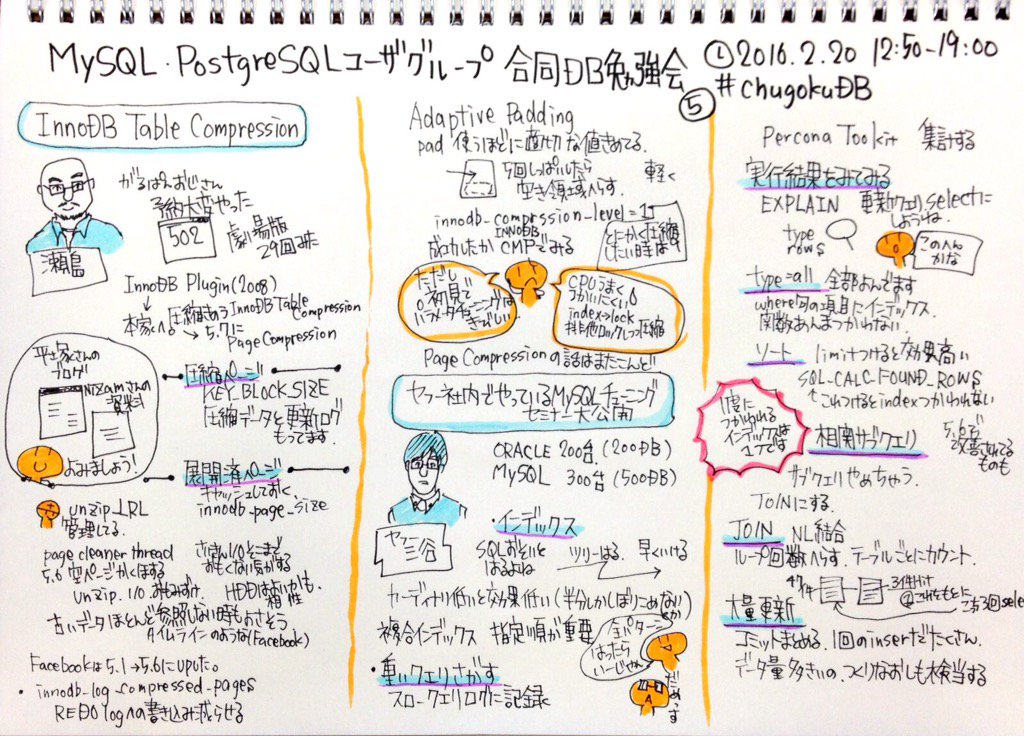 MySQL・PostgreSQLユーザグループ 合同DB勉強会
①2016.2.20 12:50-19:00
#chugokuDB
⑤
InnoDB Table Compression
がるぱんおじさん
予約大変やった
502
劇場版
29回みた
瀬島
InnoDB Plugin(2008)
本家へ。
圧縮きのう InnoDB Table Compression
5.7に Page Compression
平塚さんの
ブログ
Nizamさんの
資料
よみましょう!
圧縮ページ
KEY_BLOCK_SIZE
圧縮データと更新ログ
もってます
展開済ページ
キャッシュしておく
innodb_page_size
unzip_LRU
管理してる。
page cleaner thread
5.6 空ページかくほする
unzip. I/O.おもみずけ.
HDDはよいかも.
相性
古いデータほとんど参照しない時もよさそう
タイムラインのような(Facebook)
Facebookは5.1→5.6にupした。
・innodb_log_compressed_pages
REDO logへの書き込み減らせる
Adaptive Padding
pad 使うほどに適切な値きめてる。
5回しっぱいしたら
空き領域へらす.
軽く
innodb_compression_level=1
INNODB
成功したか CMPでみる
とにかく圧縮
したい時は
ただし
初見で
パラメータチューニングは
きびしい
CPUうまく
つかいにくい
index→lock
排他ロックしつつ圧縮
Page Compressionの話はまたこんど
ヤフー社内でやっているMySQLチューニング
セミナー大公開
ORACLE 200台(200DB)
MySQL 300台(500DB)
ヤフー
三谷
・インデックス
SQLおそいと
はるよね
ツリーはる. 早くいける
カーディナリ低いと効果低い(半分しかしぼりこめないとか
複合インデックス 指定順が重要
全パターン
はったら
いーじゃん
だめっす
・重いクエリさがす
スロークエリログに記録
Percona Toolkit 集計する
実行結果をみてみる
EXPLAIN 更新クエリselectに
しようね.
type
rows
このへん
かな
type=all 全部よんでます
where句の項目にインデックス
関数あんまつかわない.
ソート limitつけると効果高い
SQL_CALC_FOUND_ROWS
↑これつけるとindexつかわれない
1度に
つかわれる
インデックスは
1つです
相関サブクエリ
5.6で
改善されてる
ものも
サブクエリやめちゃう.
JOINにする.
JOIN NL結合
ループ回数へらす. テーブルごとにカウント.
3件hit
これをもとに
こちら3回select
大量更新
コミットまとめる. 1回のinsertでたくさん.
データ量多きいの つくりなおしも検当する